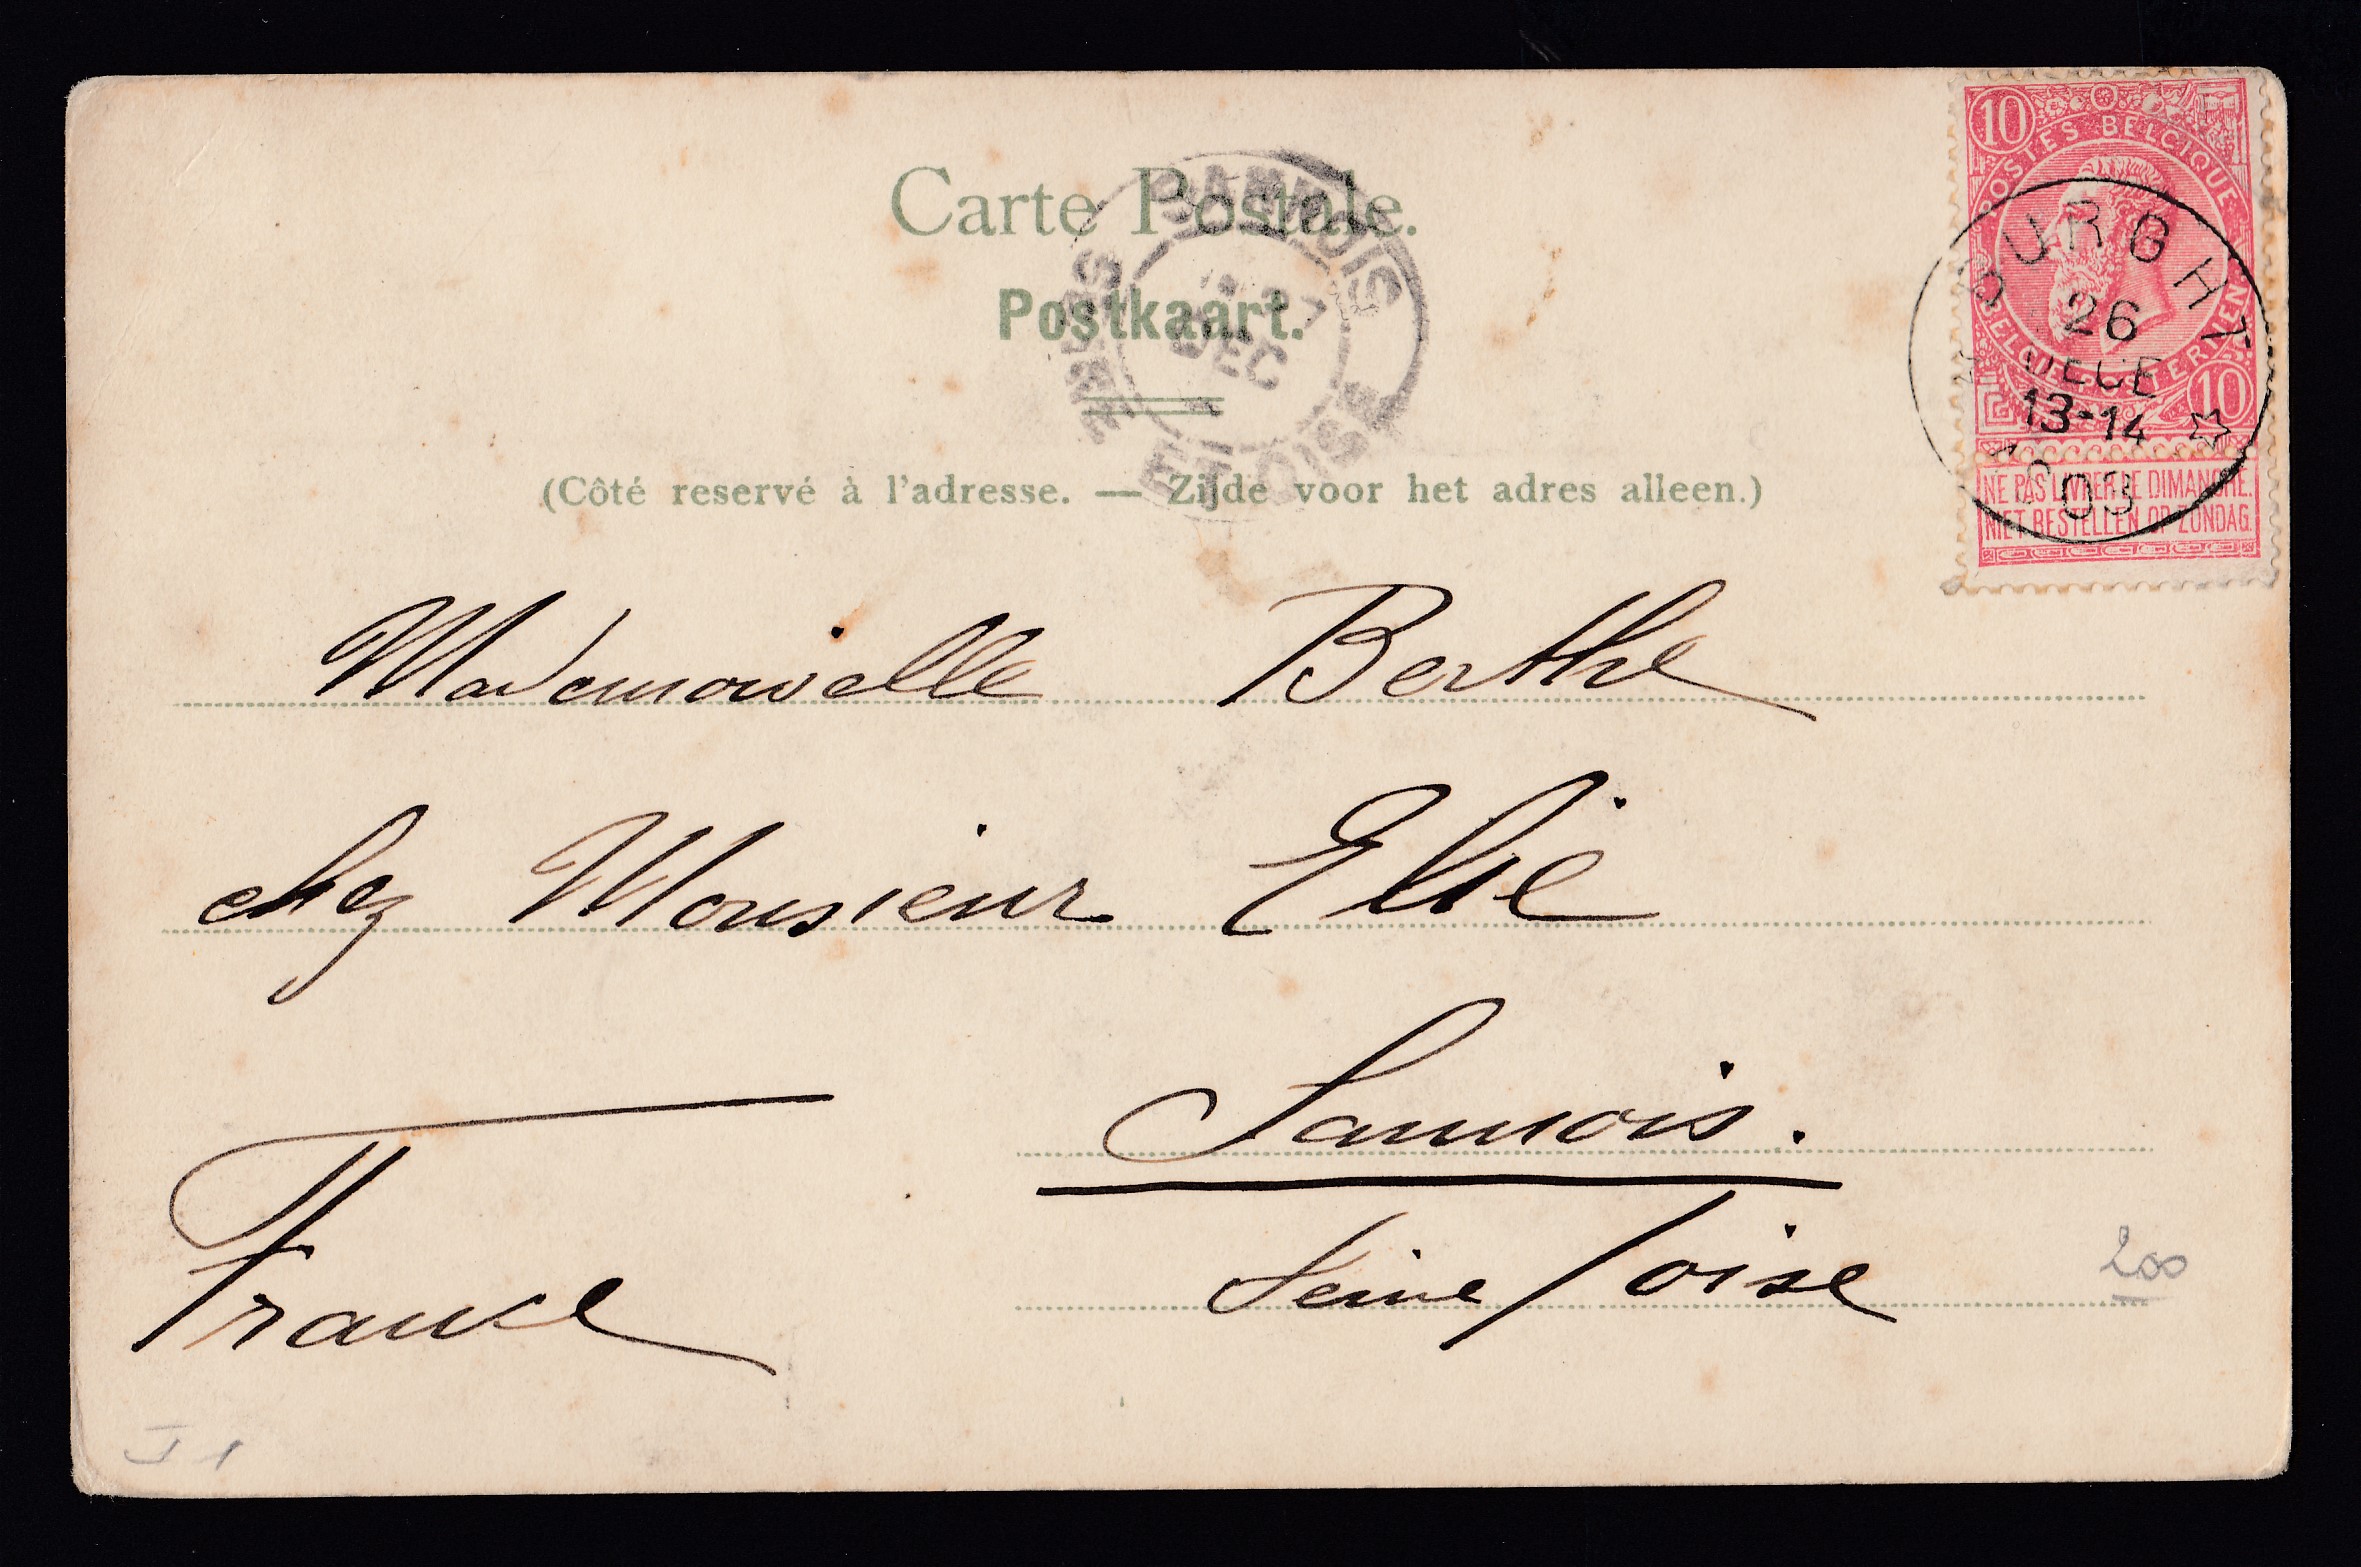 Carte Postale.
Postkaart.
(Côté reservé à l'adresse. — Zijde voor het adres alleen.)
10
POSTES BELGIQUE
BELGIE POSTERIJEN
10
NE PAS LIVRER LE DIMANCHE.
NIET BESTELLEN OP ZONDAG.
BURGHT
26
DECE
13-14
1903
SANNOIS
27
DEC
SEINE
ET
OISE
Mademoiselle Berthe
chez Monsieur Elie
Sannois.
Seine / oise
France
200